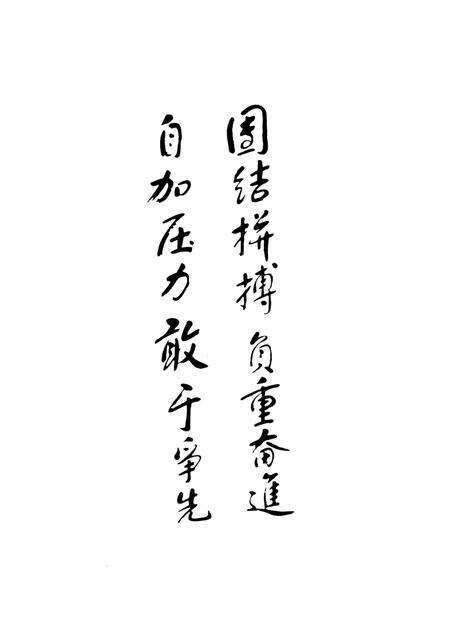 團结拼搏負重奮進
自加压力敢于爭先